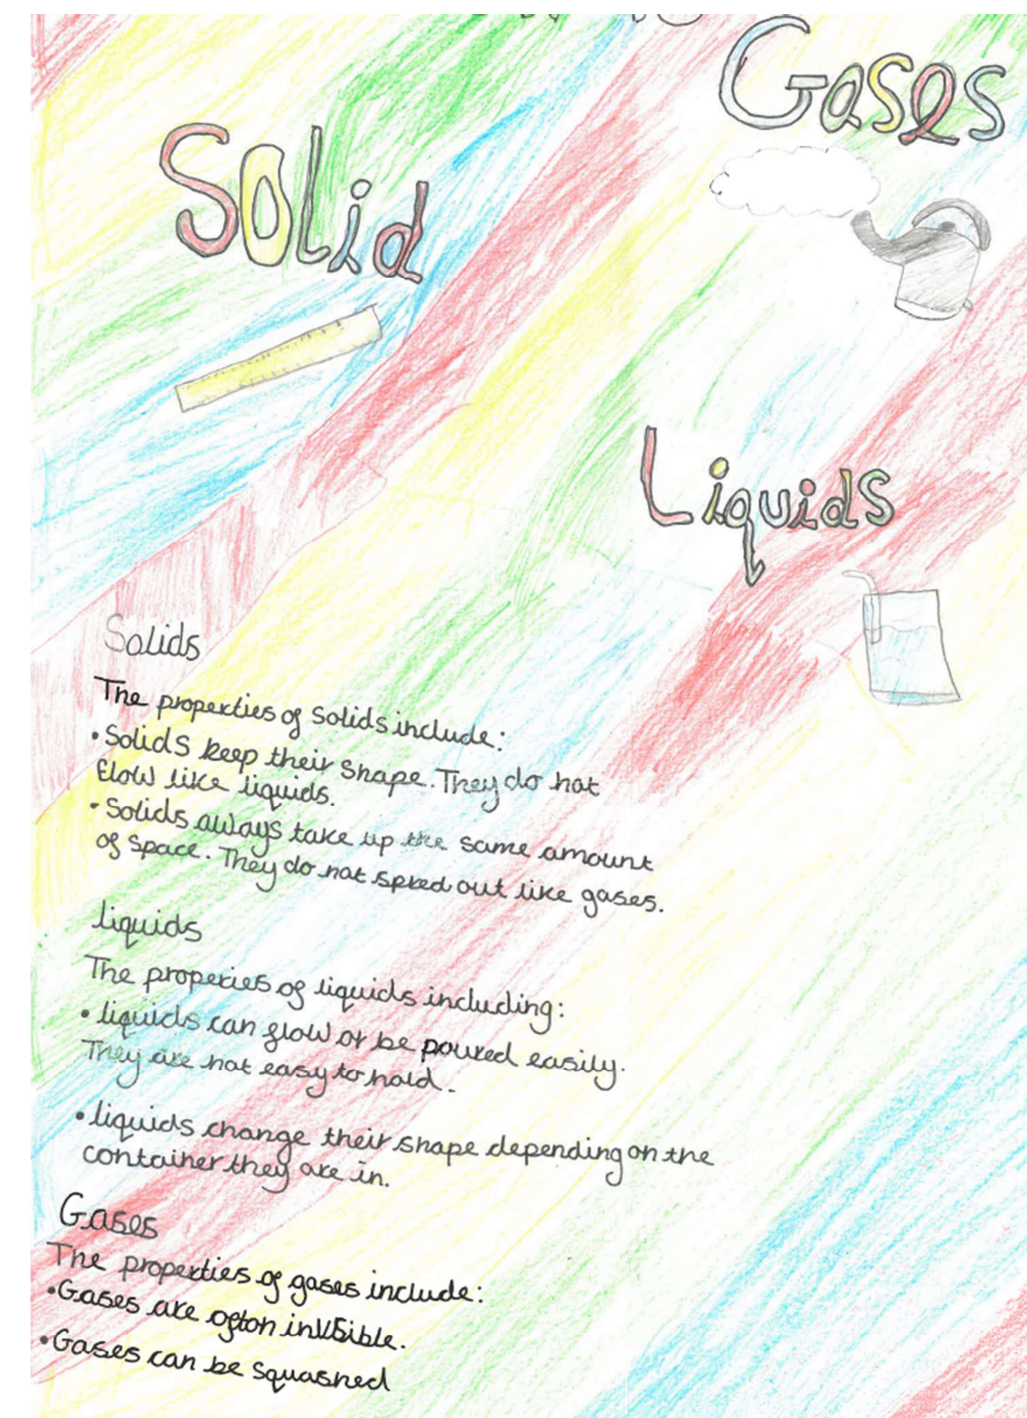 Gases
Solid
Liquids
Solids
The properties of solids include:
• Solids keep their shape. They do not
flow like liquids.
• Solids always take up the same amount
of space. They do not spred out like gases.
liquids
The properies of liquids including:
• liquids can flow or be poured easily.
They are not easy to hold.
• liquids change their shape depending on the
container they are in.
Gases
The properties of gases include:
• Gases are ofton invisible.
• Gases can be squashed